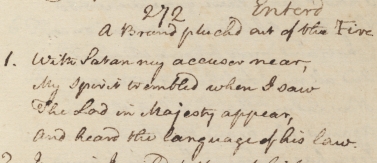 272 Enterd
A Brand pluckd out of the Fire
1. With Satan my accuser near,
My Spirit trembled when I saw
The Lord in Majesty appear,
And heard the language of his law.
2.